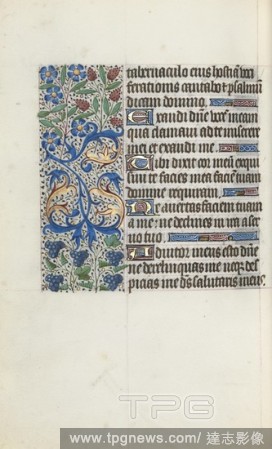 tabernaculo eius hostia boci
ferationis cantabo et psalmum
dicam domino.
Exaudi dne vocem meam
qua clamavi ad te miserere
mei et exaudi me.
Tibi dixit cor meum exqui
sivit te facies mea faciem tuam
domine requiram.
Ne avertas faciem tuam
a me: ne declines in ira a ser
vo tuo.
Adiutor meus esto dne
ne derelinquas me neqz des
picias me ds salutaris meus.
TPG
www.tpgnews.com/ 達志影像